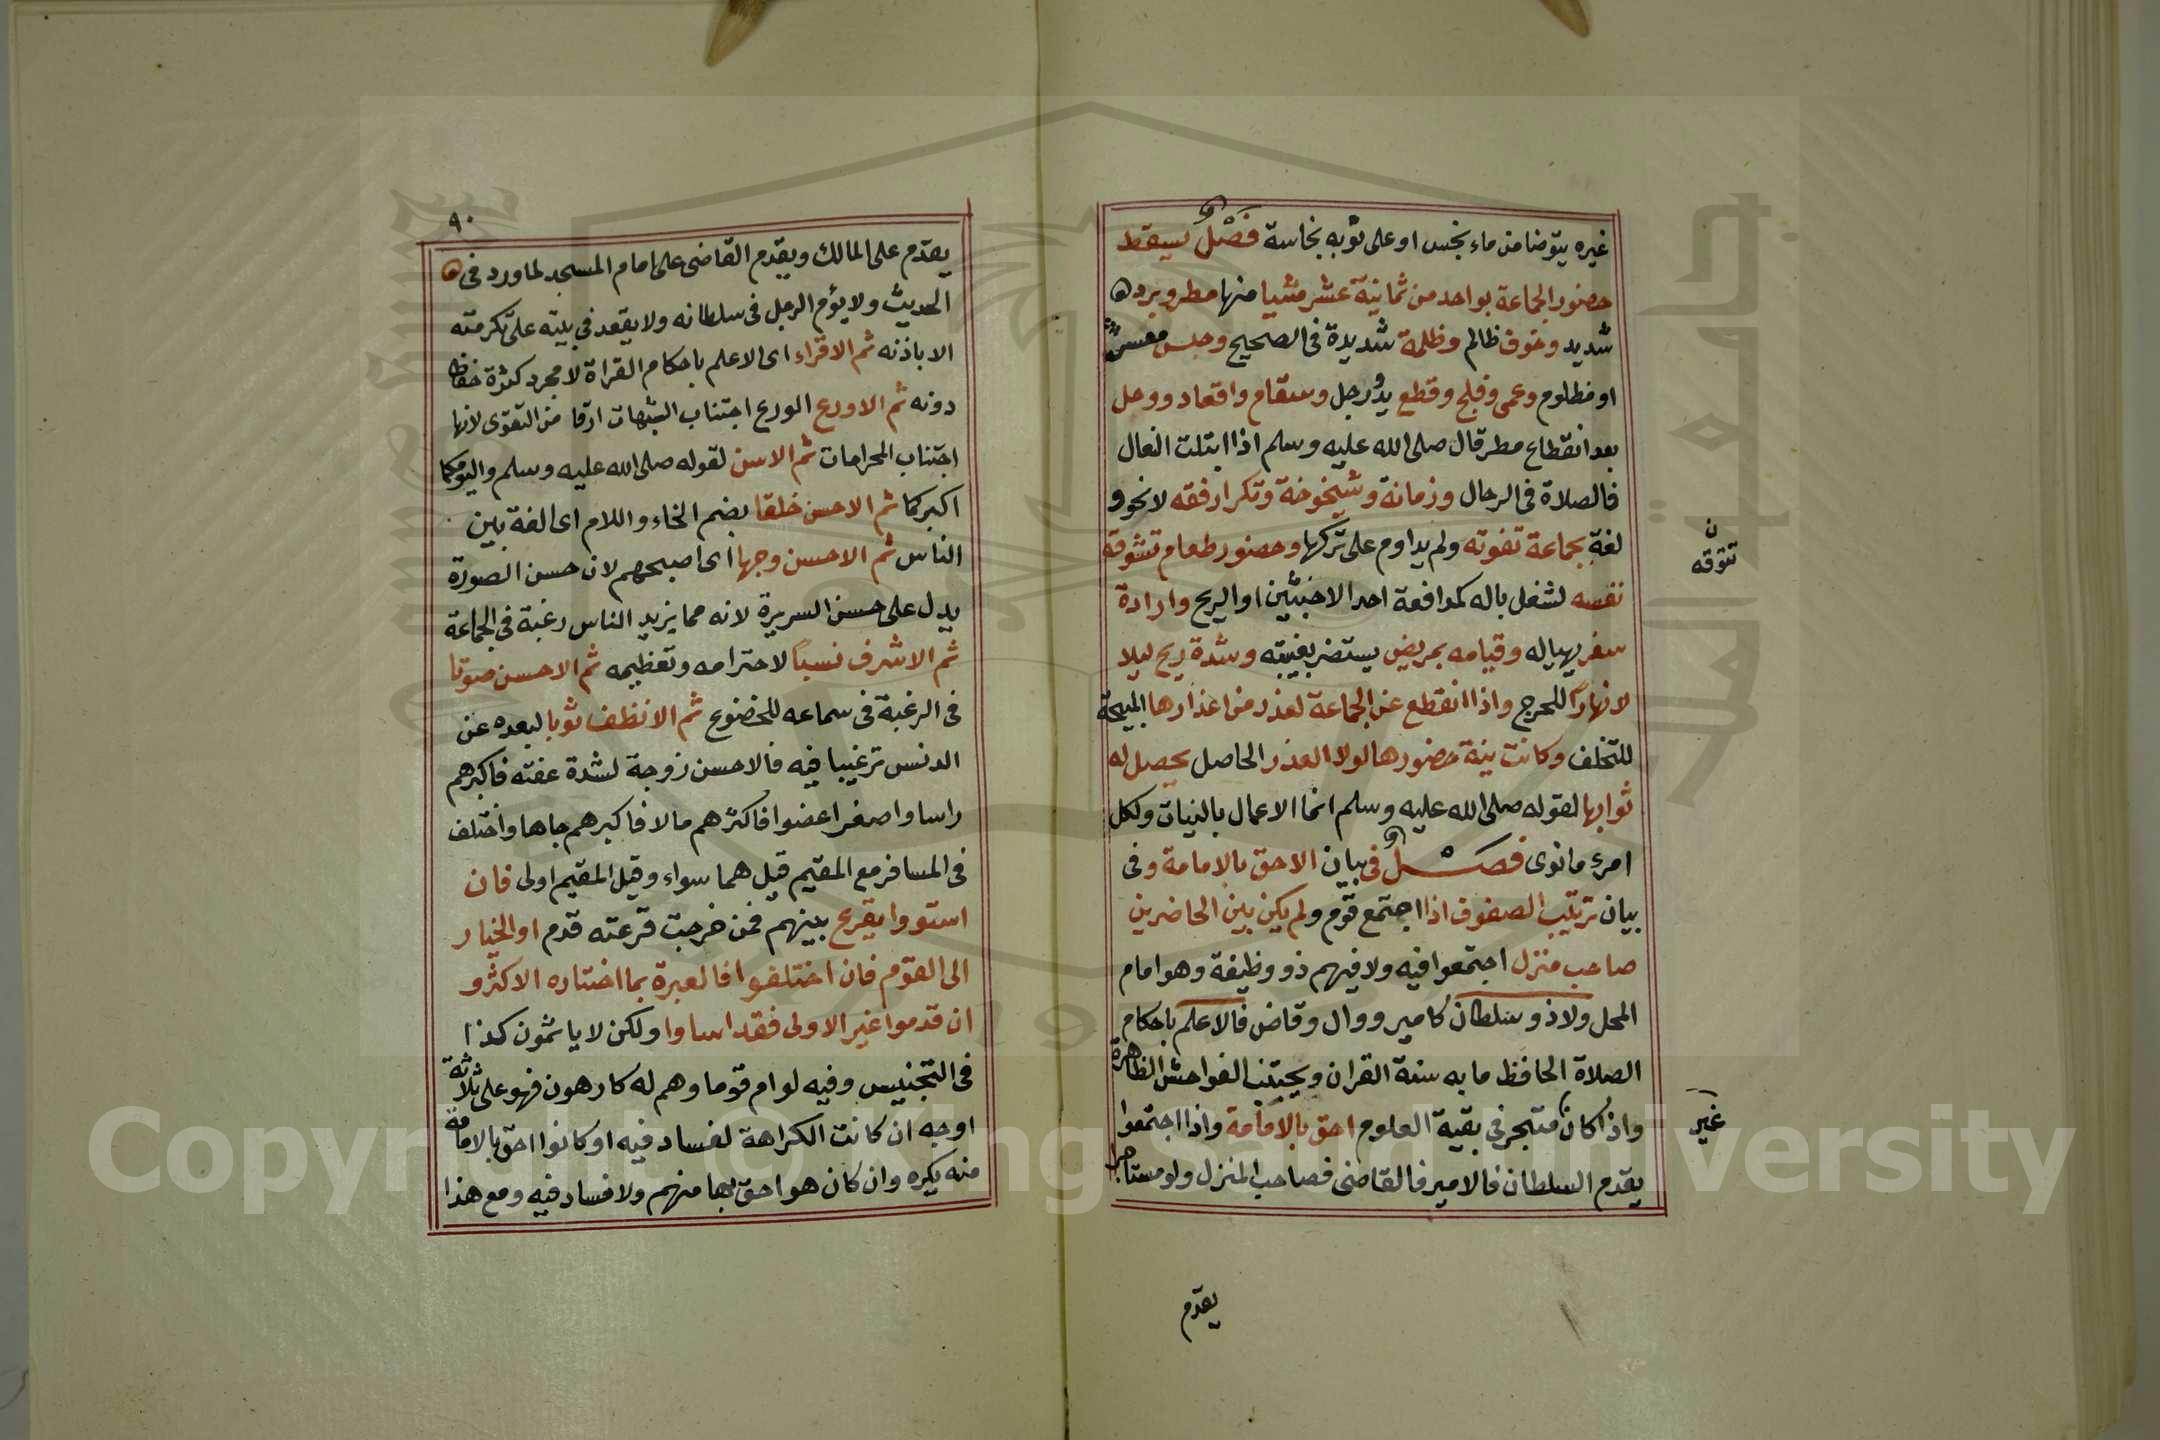 غيره يتوضا من ماء نجس او على ثوبه نجاسة فصل يسقط
حضور الجماعة بواحد من ثمانية عشر شيا منها مطر وبرد
شديد وخوف ظالم وظلمة شديدة فى الصحيح وحبس معسر
او مظلوم وعمى وفلج وقطع يد ورجل وسقام واقعاد ووحل
بعد انقطاع مطر قال صلى الله عليه وسلم اذا ابتلت النعال
فالصلاة فى الرحال وزمانة وشيخوخة وتكرار فقه لا نحو و
لغة بجماعة تفوته ولم يداوم على تركها وحضور طعام تشوقه
نفسه لشغل باله كمدافعة احد الاخبثين او الريح وارادة
سفر يهيا له وقيامه بمريض يستضر بغيبته وشدة ريح ليلا
لا نهارا للحرج واذا انقطع عن الجماعة لعذر من اعذارها المبيحة
للتخلف وكانت نية حضورها لولا العذر الحاصل يحصل له
ثوابها لقوله صلى الله عليه وسلم انما الاعمال بالنيات ولكل
امرء ما نوى فصل فى بيان الاحق بالامامة وفى
بيان ترتيب الصفوف اذا اجتمع قوم ولم يكن بين الحاضرين
صاحب منزل اجتمعوا فيه ولا فيهم ذو وظيفة وهو امام
المحل ولا ذو سلطان كامير ووال وقاض فالاعلم باحكام
الصلاة الحافظ ما به سنة القران ويجتنب الفواحش الظاهرة
واذ كان متبحر فى بقية العلوم احق بالامامة واذا اجتمعوا
يقدم السلطان فالامير فالقاضى فصاحب المنزل ولو مستاجرا
تتوقه
غير
يقدم
٩٠
يقدم على المالك ويقدم القاضى على امام المسجد لما ورد فى
الحديث ولا يؤم الرجل فى سلطانه ولا يقعد فى بيته على تكرمته
الا باذنه ثم الاقراء اى الاعلم باحكام القراة لا مجرد كثرة حفظ
دونه ثم الاورع الورع اجتناب الشبهات ارقا من التقوى لانها
اجتناب المحرامات ثم الاسن لقوله صلى الله عليه وسلم واليؤمكما
اكبركما ثم الاحسن خلقا بضم الخاء واللام اى الفة بين
الناس ثم الاحسن وجها اى اصبحهم لان حسن الصورة
يدل على حسن السريرة لانه مما يزيد الناس رغبة فى الجماعة
ثم الاشرف نسبا لاحترامه وتعظيمه ثم الاحسن صوتا
فى الرغبة فى سماعه للخضوع ثم الانظف ثوبا لبعده عن
الدنس ترغيبا فيه فالاحسن زوجة لشدة عفته فاكبرهم
راسا واصغر اعضوا فاكثرهم مالا فاكبرهم جاها واختلف
فى المسافر مع المقيم قيل هما سواء وقيل المقيم اولى فان
استووا يقرع بينهم فمن خرجت قرعته قدم او الخيار
الى القوم فان اختلفوا فالعبرة بما اختاره الاكثر و
ان قدموا غير الاولى فقد اساوا ولكن لا ياثمون كذا
فى التجنيس وفيه لوام قوما وهم له كارهون فهو على ثلاثة
اوجه ان كانت الكراهة لفساد فيه او كانوا احق بالامامة
منه يكره وان كان هو احق بها منهم ولا فساد فيه ومع هذا
Copyright © King Saud University